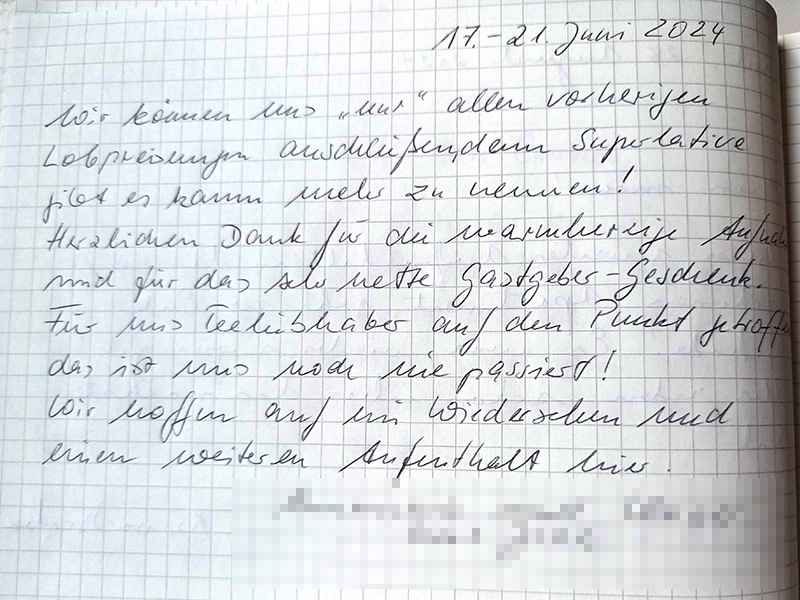 17.-21. Juni 2024
Wir können uns „nur“ allen vorherigen
Lobpreisungen anschließen, denn Superlative
gibt es kaum mehr zu nennen!
Herzlichen Dank für die warmherzige Aufnah
und für das sehr nette Gastgeber-Geschenk.
Für uns Teeliebhaber auf den Punkt getroffen
das ist uns noch nie passiert!
Wir hoffen auf ein Wiedersehen und
einen weiteren Aufenthalt hier.